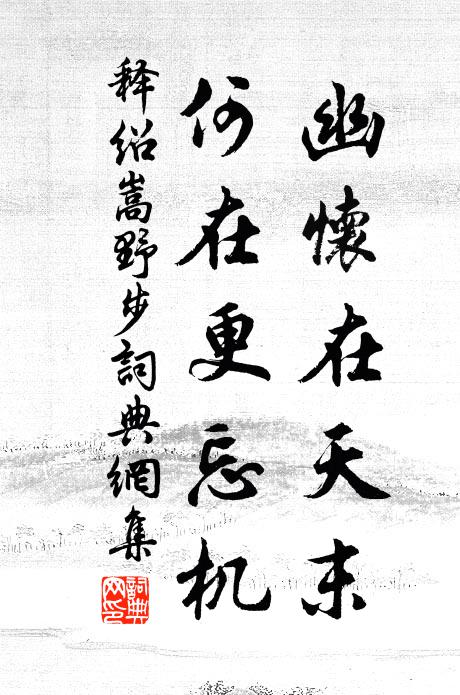 幽懷在天末
何在更忘机
释绍嵩野步詞典網集
詞典網印